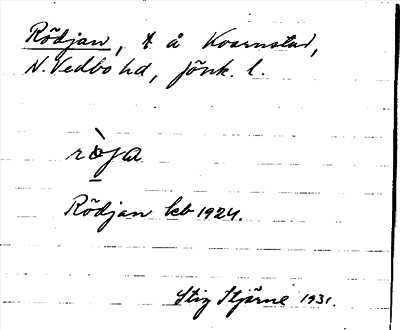 Rödjan, t å Kvarnstad,
N. Vedbo hd, Jönk. l.
rö̀ja
Rödjan kb 1924.
Stig Stjärne 1931.